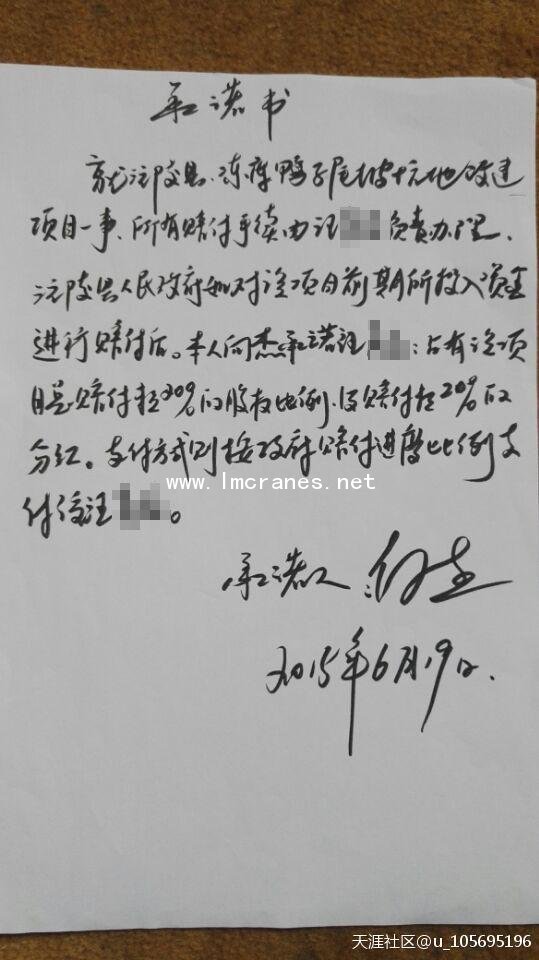 承诺书
就沅陵县、凉摩鸭子尾坡土地改建
项目一事、所有赔付手续由汪 负责办理、
沅陵县人民政府如对该项目前期所投入资金
进行赔付后。本人向杰承诺汪 : 占有该项
目总赔付款20%的股权比例、及赔付款20%的
分红。支付方式则按政府赔付进度比例支
付给汪 。
www.lmcranes.net
承诺人: 向杰
2015年6月19日.
天涯社区@u_105695196